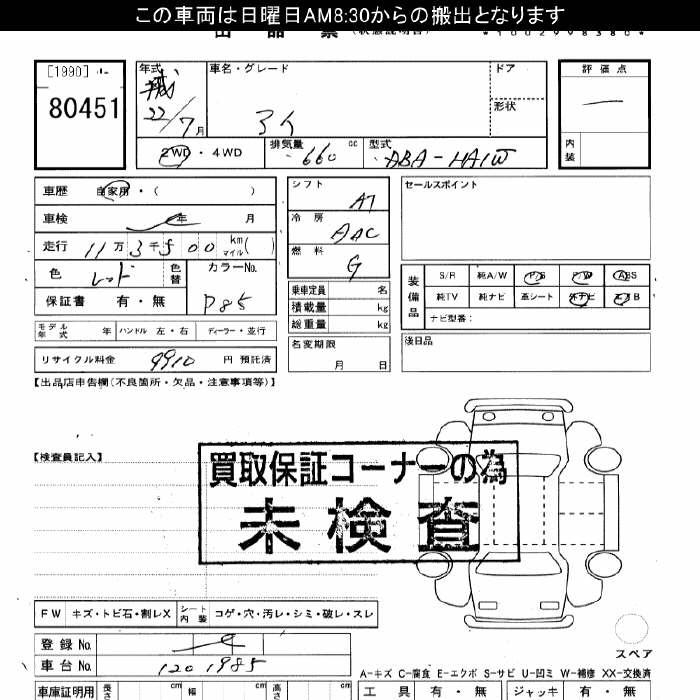 この車両は日曜日AM8:30からの搬出となります
*1002998380*
[1990]
80451
年式 車名・グレード ドア 評価点
22/7月 アイ 形状
内装
2WD・4WD 排気量 660 cc 型式 ABA-HA1W
車歴 自家用・( )
シフト AT
セールスポイント
車検 年 月
冷房 AAC
走行 11万3千500 km マイル( )
燃料 G
色 レッド 色替 カラーNo. P85
保証書 有・無
乗車定員 名
積載量 kg
総重量 kg
装備品 S/R 純A/W P/S P/W ABS
純TV 純ナビ 革シート 外ナビ エアB
ナビ型番:
モデル年式 年 ハンドル 左・右 ディーラー・並行
名変期限 月 日
後日品
リサイクル料金 9910 円 預託済
【出品店申告欄(不良箇所・欠品・注意事項等)】
【検査員記入】
買取保証コーナーの為
未検査
FW キズ・トビ石・割レX シート内装 コゲ・穴・汚レ・シミ・破レ・スレ
登録No.
車台No. 1201985
スペア
A-キズ C-腐食 E-エクボ S-サビ U-凹ミ W-補修 XX-交換済
車庫証明用 長さ cm 幅 cm 高さ cm
工具 有・無 ジャッキ 有・無